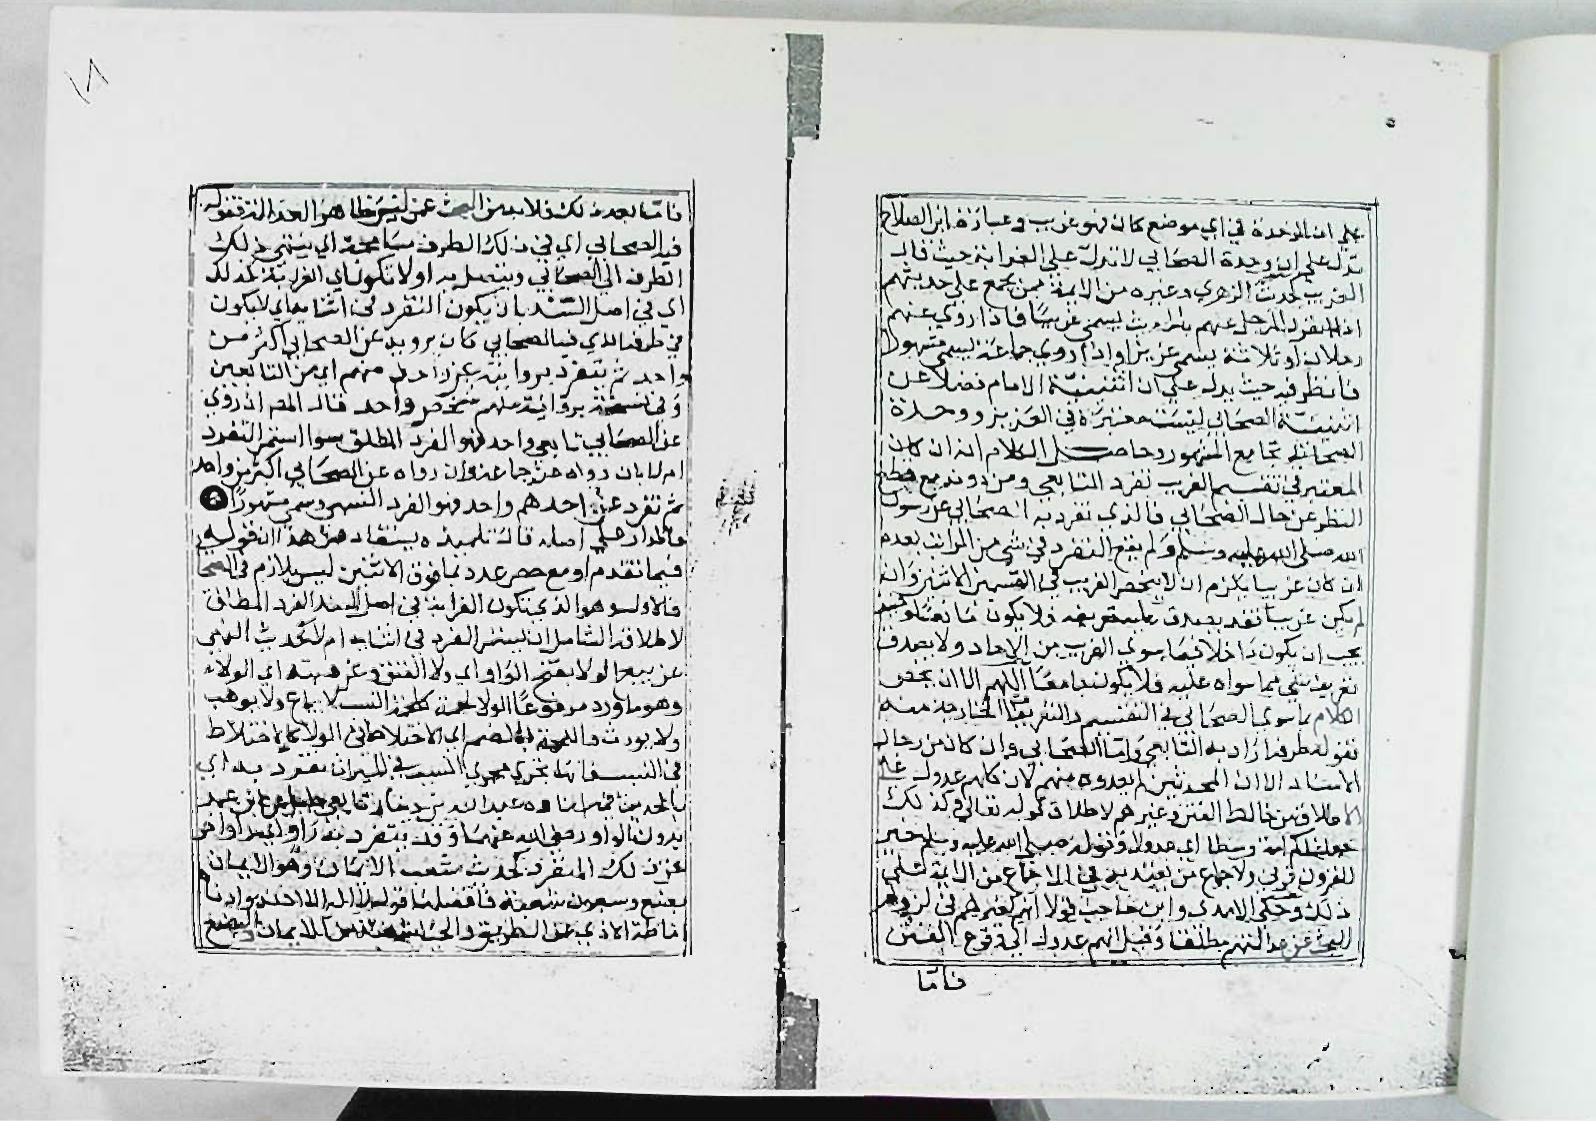 على ان الوحدة في اي موضع كان فهو غريب وعبارة ابن الصلاح
تدل على ان وحدة الصحابي لا تدل على الغرابة حيث قال
الغريب كحديث الزهري وغيره من الائمة ممن يجمع على حديثهم
اذا انفرد الرجل عنهم بالحديث يسمى غريبا فاذا روي عنهم
رجلان او ثلاثة يسمى عزيزا واذا روي جماعة يسمى مشهورا
فانظر فيه حيث يدل على ان اثنينية الامام فضلا عن
اثنينية الصحابي ليست معتبرة في العزيز ووحدة
الصحابي تجامع المشهور وحاصل الكلام انه ان كان
المعتبر في تقسيم الغريب تفرد التابعي ومن دونه مع قطع
النظر عن حال الصحابي فالذي تفرد به الصحابي عن رسول
الله صلى الله عليه وسلم ولم يقع التفرد في شي من المراتب بعده
ان كان غريبا يلزم ان لا ينحصر الغريب في القسمين الاثنين وان
لم يكن غريبا فقد يصدق عليه تعريفه ولا يكون مانعا
يجب ان يكون داخلا فيما سوي الغريب من الاحاد ولا يصدق
تعريف شي مما سواه عليه فلا يكون جامعا اللهم الا ان يخص
الكلام بما سوي الصحابي في التقسيم والتعريفات الخارجة منه
فقوله طرفه اراد به التابعي واما الصحابي وان كان من رجال
الاسناد الا ان المحدثين لم يعدوه منهم لان كلهم عدول على
الاطلاق من خالط الفتن وغيرهم لاطلاق قوله تعالى وكذلك
جعلناكم امة وسطا اي عدولا وقوله صلى الله عليه وسلم خير
القرون قرني ولاجماع من يعتد به في الاجماع من الائمة على
ذلك وحكى الامدي وابن حاجب قولا انهم كغيرهم في لزوم
البحث عن عدالتهم مطلقا وقيل انهم عدول الى وقوع الفتن
فاما
فاما بعد ذلك فلا بد من البحث عمن ليس ظاهر العدالة فقوله
فيه الصحابي اي في ذلك الطرف مسامحة اي ينتهي ذلك
الطرف الى الصحابي ويتصل به او لا تكون اي الغرابة كذلك
اي في اصل السند بان يكون التفرد في اثنائه اي لا يكون
في طرفه الذي فيه الصحابي كان يرويه عن الصحابي اكثر من
واحد ثم يتفرد بروايته عن واحد منهم اي من التابعين
وفي نسخة بروايته منهم شخص واحد قال المص ان روي
عن الصحابي تابعي واحد فهو الفرد المطلق سوا استمر التفرد
ام لا بان رواه عنه جماعة وان رواه عن الصحابي اكثر من واحد
ثم تفرد عن احدهم واحد فهو الفرد النسبي وسمي مشهورا
فالمدار على اصله قال تلميذه يستفاد من هذا ان قوله
فيما تقدم او مع حصر عدد بما فوق الاثنين ليس بلازم في الصحا
فالاول وهو الذي تكون الغرابة في اصل السند الفرد المطلق
لاطلاقه الشامل ان يستمر الفرد في اثنائه ام لا كحديث النهي
عن بيع الولا بفتح الواو اي ولا العتق وعن هبته اي الولاء
وهو ما ورد مرفوعا الولا لحمة كلحمة النسب لا يباع ولا يوهب
ولا يورث فاللحمة بالضم اي الاختلاط في الولا كالاختلاط
في النسب فانها تجري مجري النسب في الميراث تفرد به اي
بالحديث عبد الله بن دينار تابعي جليل عن ابن عمر
بدون الواو رضي الله عنهما وقد يتفرد به راو اي اخر
عن ذلك المتفرد كحديث شعب الايمان وهو الايمان
بضع وسبعون شعبة فافضلها قول لا اله الا الله وادناها
اماطة الاذي عن الطريق والحيا شعبة من الايمان والبضع
١٨